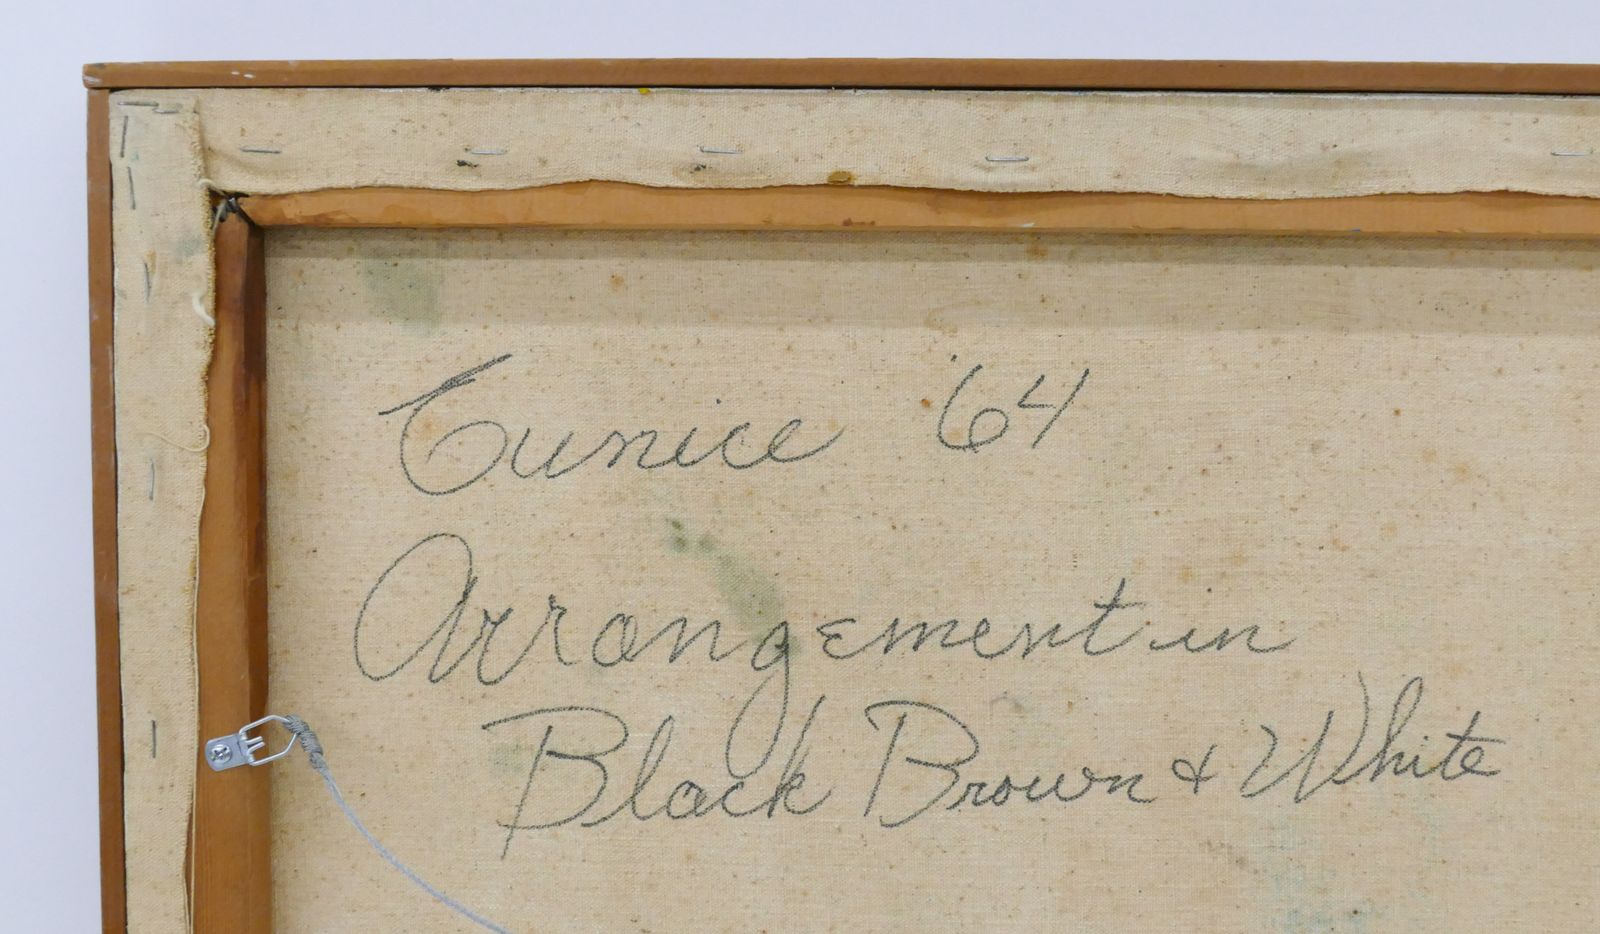 Eunice '64
Arrangement in
Black Brown & White